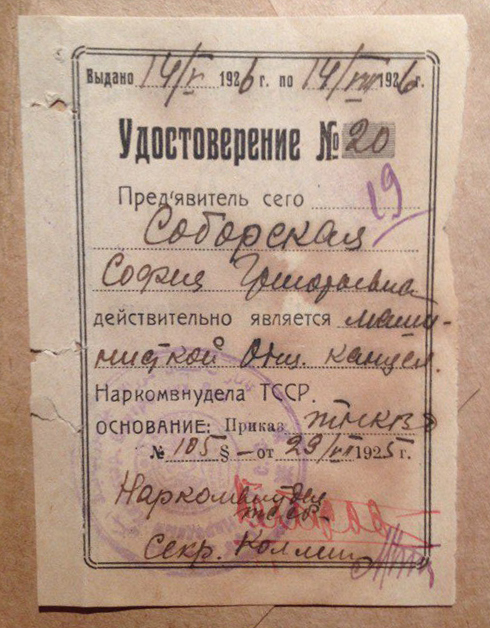 Выдано 14/V 1926 г. по 14/VIII 1926 г.
Удостоверение № 20
19
Пред'явитель сего
Соборская
София Григорьевна
действительно является маши-
нисткой Общ. канцел.
Наркомвнудела ТССР.
ОСНОВАНИЕ: Приказ
№ 105 § - от 29/VII 1925 г.
Наркомвнудел
ТССР
Секр. Коллегии